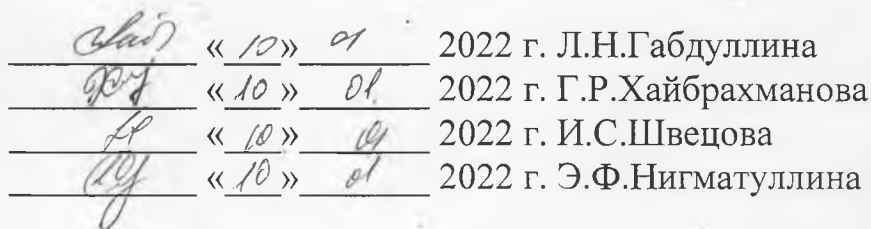 «10» 01 2022 г. Л.Н.Габдуллина
«10» 01 2022 г. Г.Р.Хайбрахманова
«10» 01 2022 г. И.С.Швецова
«10» 01 2022 г. Э.Ф.Нигматуллина